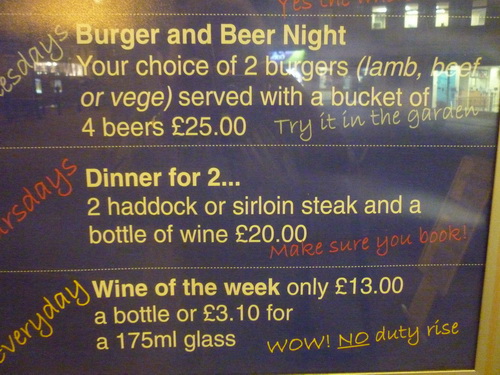 Yes the
Burger and Beer Night
Your choice of 2 burgers (lamb, beef
or vege) served with a bucket of
4 beers £25.00
Try it in the garden
Dinner for 2...
2 haddock or sirloin steak and a
bottle of wine £20.00
Make sure you book!
everyday
Wine of the week only £13.00
a bottle or £3.10 for
a 175ml glass
WOW! NO duty rise